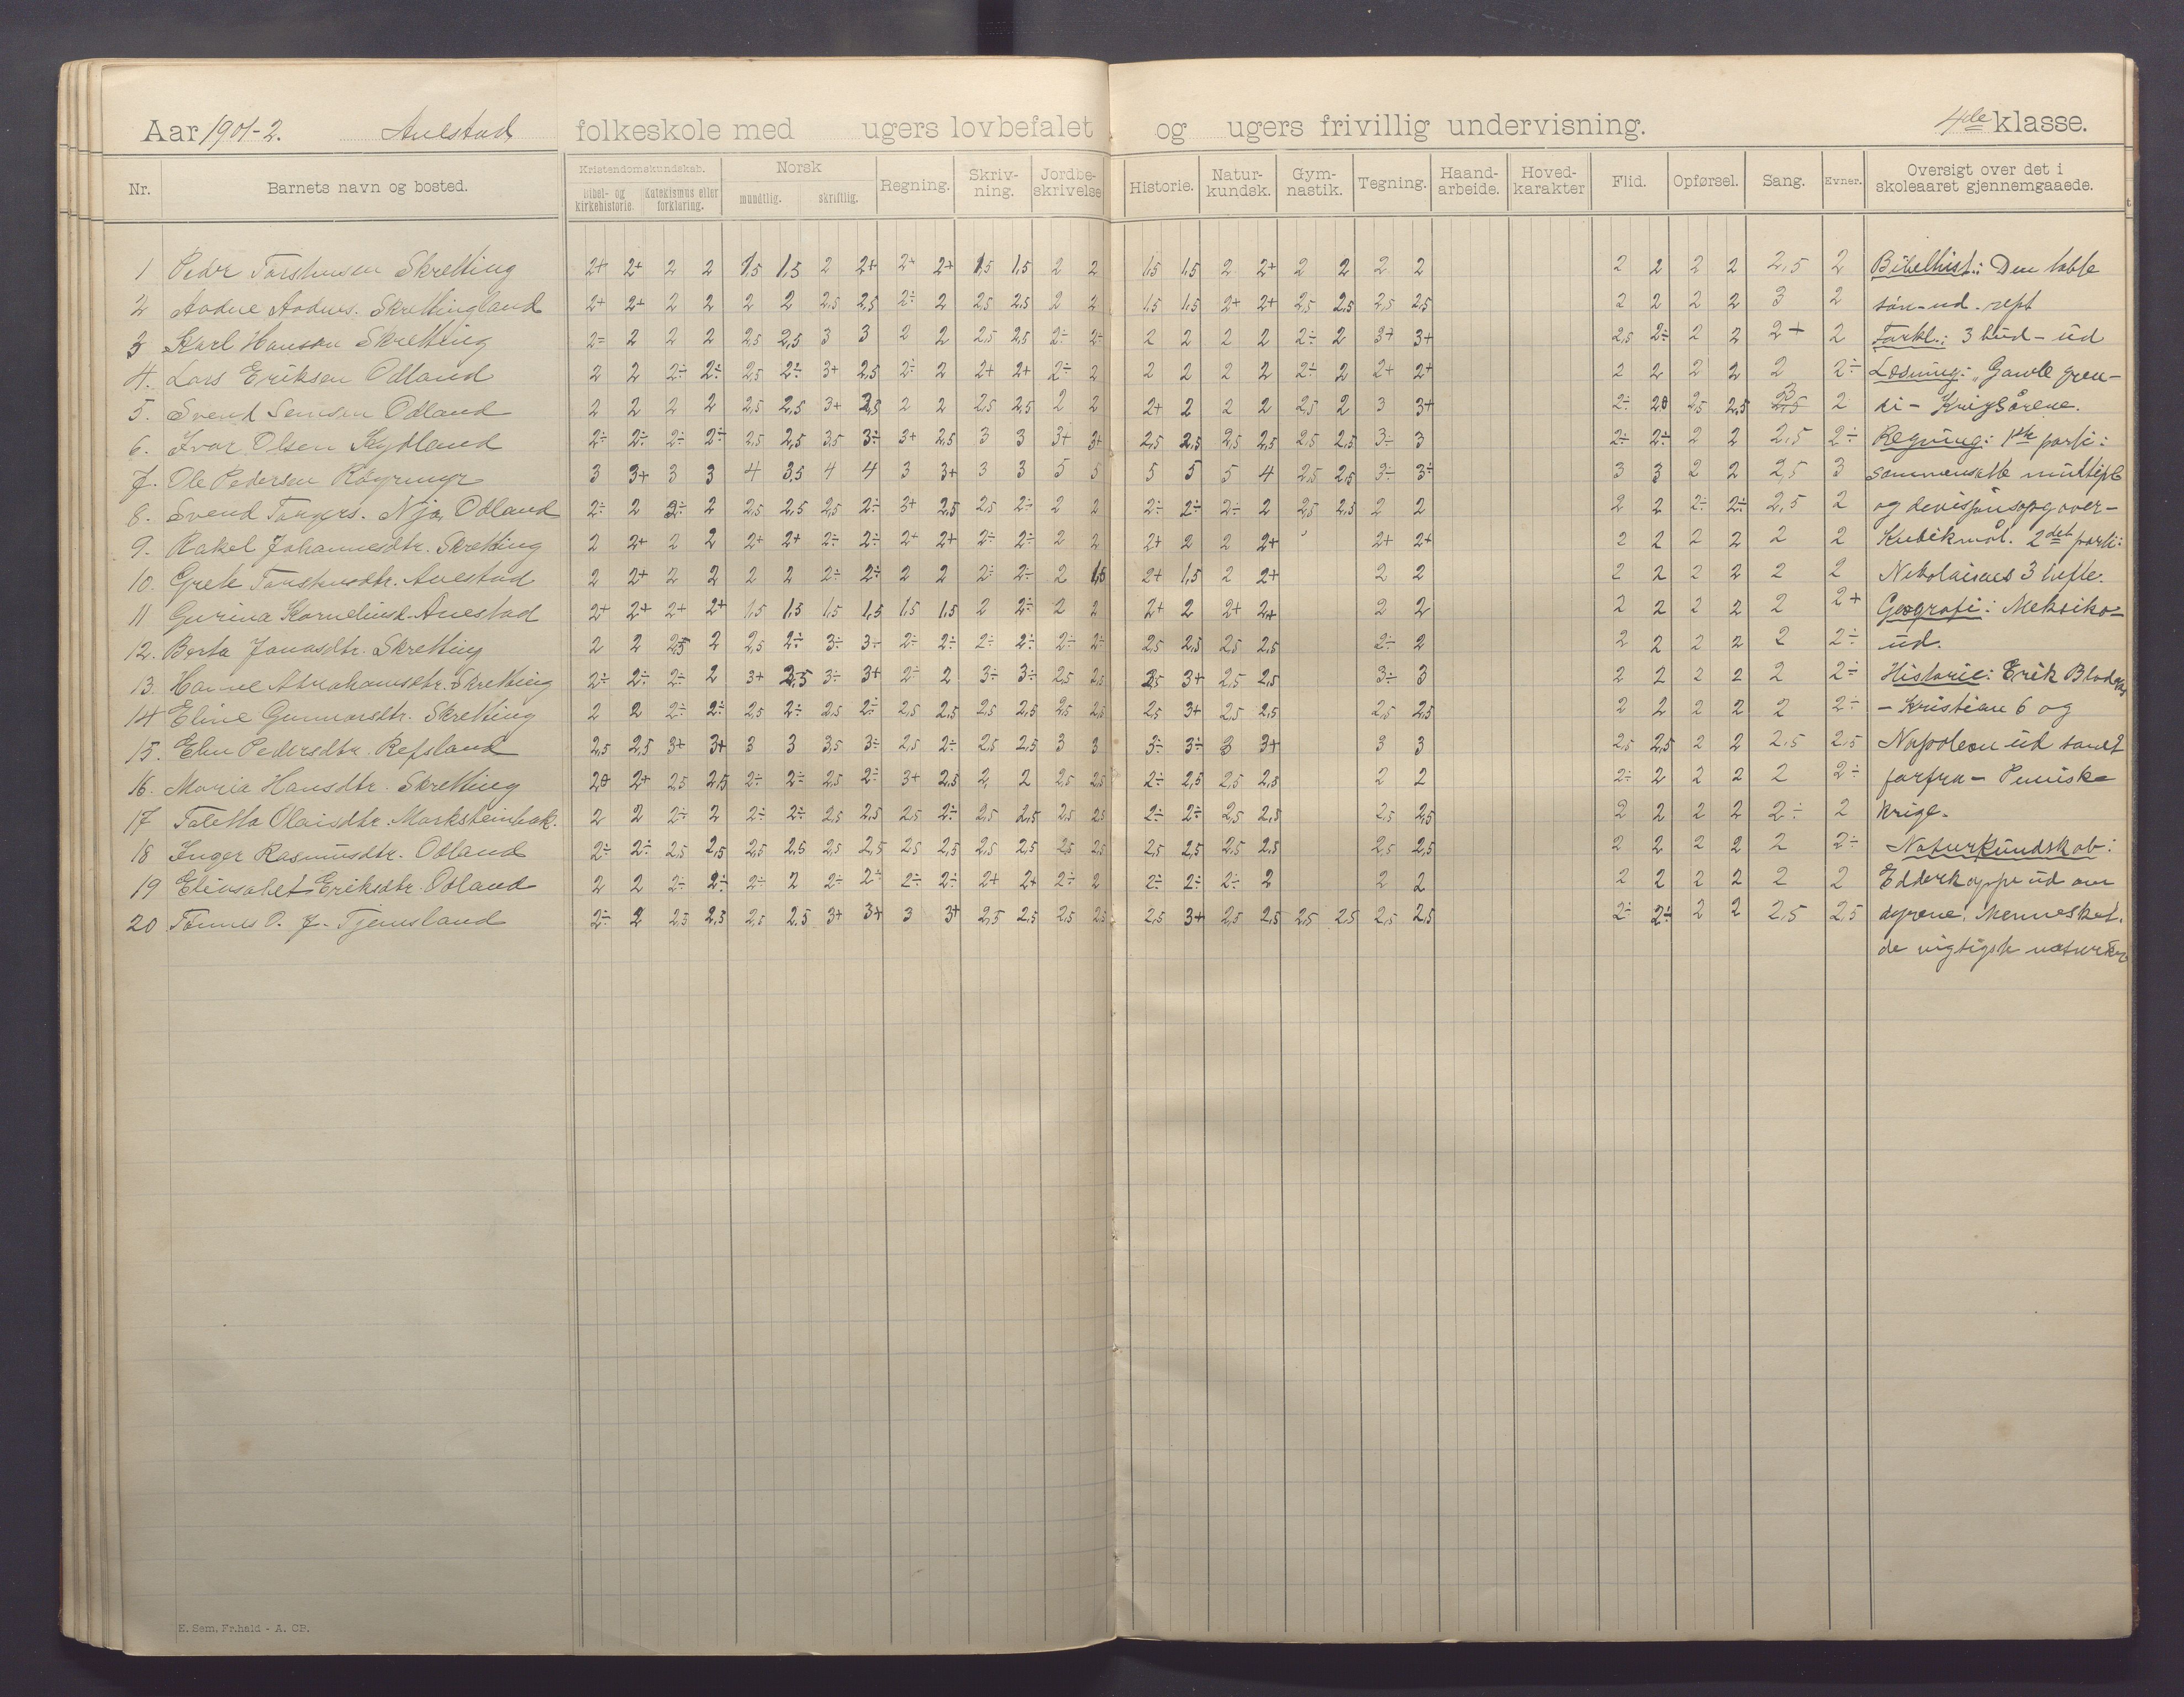 Aar 1901-2. Auestad folkeskole med ugers lovbefalet og ugers frivillig undervisning. 4de klasse.
Nr. Barnets navn og bosted. Kristendomskundskab. Bibel- og kirkehistorie. Katekismus eller forklaring. Norsk mundtlig. skriftlig. Regning. Skriv-ning. Jordbe-skrivelse Historie. Natur-kundsk. Gym-nastik. Tegning. Haand-arbeide. Hoved-karakter Flid. Opførsel. Sang. Evner. Oversigt over det i skoleaaret gjennemgaaede.
1 Peder Torstensen Skretting 2+ 2+ 2 2 1,5 1,5 2 2+ 2+ 2+ 1,5 1,5 2 2 1,5 1,5 2 2+ 2 2 2 2 2 2 2 2 2,5 2 Bibelhist.: Den tabte
2 Aadne Aadnes. Skrettingland 2+ 2+ 2 2 2 2 2,5 2,5 2÷ 2 2,5 2,5 2 2 1,5 1,5 2+ 2+ 2,5 2,5 2,5 2,5 2 2 2 2 3 2 søn-ud. rept
3 Karl Hanson Skretting 2÷ 2 2 2 2,5 2,5 3 3 2 2 2,5 2,5 2÷ 2÷ 2 2 2 2 2÷ 2 3+ 3+ 2,5 2÷ 2 2 2+ 2 Forkl.: 3 bud - ud
4. Lars Eriksen Odland 2 2 2÷ 2÷ 2,5 2÷ 3+ 2,5 2÷ 2 2+ 2+ 2÷ 2 2 2 2 2 2÷ 2 2+ 2+ 2 2 2 2 2 2÷ Læsning: "Gamle gren-
5. Svend Odland 2 2 2 2 2,5 2,5 3+ 2,5 2 2 2,5 2,5 2 2 2+ 2 2 2 2,5 2 3 3+ 2÷ 2,5 2,5 2 di - Krigsårene.
6. Ivar Olsen 2÷ 2÷ 2÷ 2÷ 2,5 2,5 3,5 3÷ 3+ 2,5 3 3 3+ 3+ 2,5 2,5 2,5 2,5 2,5 2,5 3÷ 3 2÷ 2÷ 2 2 2,5 2÷ Regning: 1ste parti:
7. Ole Pedersen Røyrmyr 3 3+ 3 3 4 3,5 4 4 3 3+ 3 3 5 5 5 5 5 4 2,5 2,5 3÷ 3÷ 3 3 2 2 2,5 3 sammensatte multipl
8. Svend Torgers. Njå, Odland 2÷ 2 2÷ 2 2,5 2,5 2,5 2÷ 3+ 2,5 2,5 2÷ 2 2 2÷ 2÷ 2÷ 2 2,5 2,5 2 2 2 2 2÷ 2÷ 2,5 2 og divisjonsopg over-
9. Rakel Johannesdtr. Skretting 2 2+ 2 2 2+ 2+ 2÷ 2÷ 2+ 2+ 2÷ 2÷ 2 2 2+ 2 2 2+ 2+ 2+ 2 2 2 2 2 2 Kubikmål. 2det parti:
10. Grete Torstensdtr. Auestad 2 2+ 2 2 2 2 2÷ 2÷ 2 2 2÷ 2÷ 2 1,5 2+ 1,5 2 2+ 2 2 2 2 2 2 2 2 Nikolaisens 3 hefte.
11 Gurina Korneliusd. Auestad 2+ 2+ 2+ 2+ 1,5 1,5 1,5 1,5 1,5 1,5 2 2÷ 2 2 2+ 2 2+ 2+ 2 2 2 2 2 2 2 2+ Geografi: Meksiko-
12. Berta Jonasdtr. Skretting 2 2 2,5 2 2,5 2÷ 3÷ 3÷ 2÷ 2÷ 2÷ 2÷ 2÷ 2÷ 2,5 2,5 2,5 2,5 2÷ 2 2 2 2 2 2 2÷ ud.
13. Hanne Abrahamsdtr. Skretting 2÷ 2÷ 2÷ 2 3+ 2,5 3÷ 3+ 2÷ 2 3÷ 3÷ 2,5 2,5 2,5 3+ 2,5 2,5 3÷ 3 2 2 2 2 2 2÷ Historie: Erik Blodøks
14 Eline Gunnarsdtr. Skretting 2 2 2÷ 2÷ 2,5 2÷ 2,5 2÷ 2,5 2,5 2,5 2,5 2,5 2,5 2,5 3+ 2,5 2,5 2,5 2,5 2 2 2 2 2 2÷ - Kristian 6 og
15. Elen Pedersdtr. Refsland 2,5 2,5 3+ 3+ 3 3 3,5 3÷ 2,5 2÷ 2,5 2,5 3 3 3÷ 3÷ 3 3+ 3 3 2,5 2,5 2 2 2,5 2,5 Napoleon ud samt
16. Maria Hansdtr. Skretting 2+ 2,5 2,5 2÷ 2÷ 2,5 2÷ 3+ 2,5 2 2 2,5 2,5 2÷ 2,5 2,5 2,5 2 2 2÷ 2 2 2 2 2÷ forfra - Puniske
17 Taletta Olaisdtr. Marksteinbak. 2 2 2÷ 2 2÷ 2÷ 2,5 2,5 2,5 2÷ 2,5 2,5 2,5 2,5 2÷ 2÷ 2,5 2,5 2,5 2,5 2 2 2 2 2÷ 2 krige.
18 Inger Rasmusdtr. Odland 2÷ 2÷ 2,5 2,5 2,5 2,5 2,5 2,5 2,5 2,5 2,5 2,5 2,5 2,5 2,5 2,5 2,5 2,5 2,5 2,5 2 2 2 2 2 2÷ Naturkundskab:
19 Elisabet Eriksdtr. Odland 2 2 2÷ 2÷ 2÷ 2 2÷ 2÷ 2÷ 2÷ 2+ 2+ 2÷ 2 2÷ 2÷ 2÷ 2 2 2 2 2 2 2 2 2 Edderkoppe ud om
20 Tønnes O. J. Tjemsland 2÷ 2 2,5 2,5 2,5 2,5 3+ 3+ 3 3+ 2,5 2,5 2,5 2,5 2,5 3+ 2,5 2,5 2,5 2,5 2,5 2,5 2÷ 2÷ 2 2 2,5 2,5 dyrene. Mennesket.
de vigtigste naturkr
E. Sem, Fr.hald - A. CB.